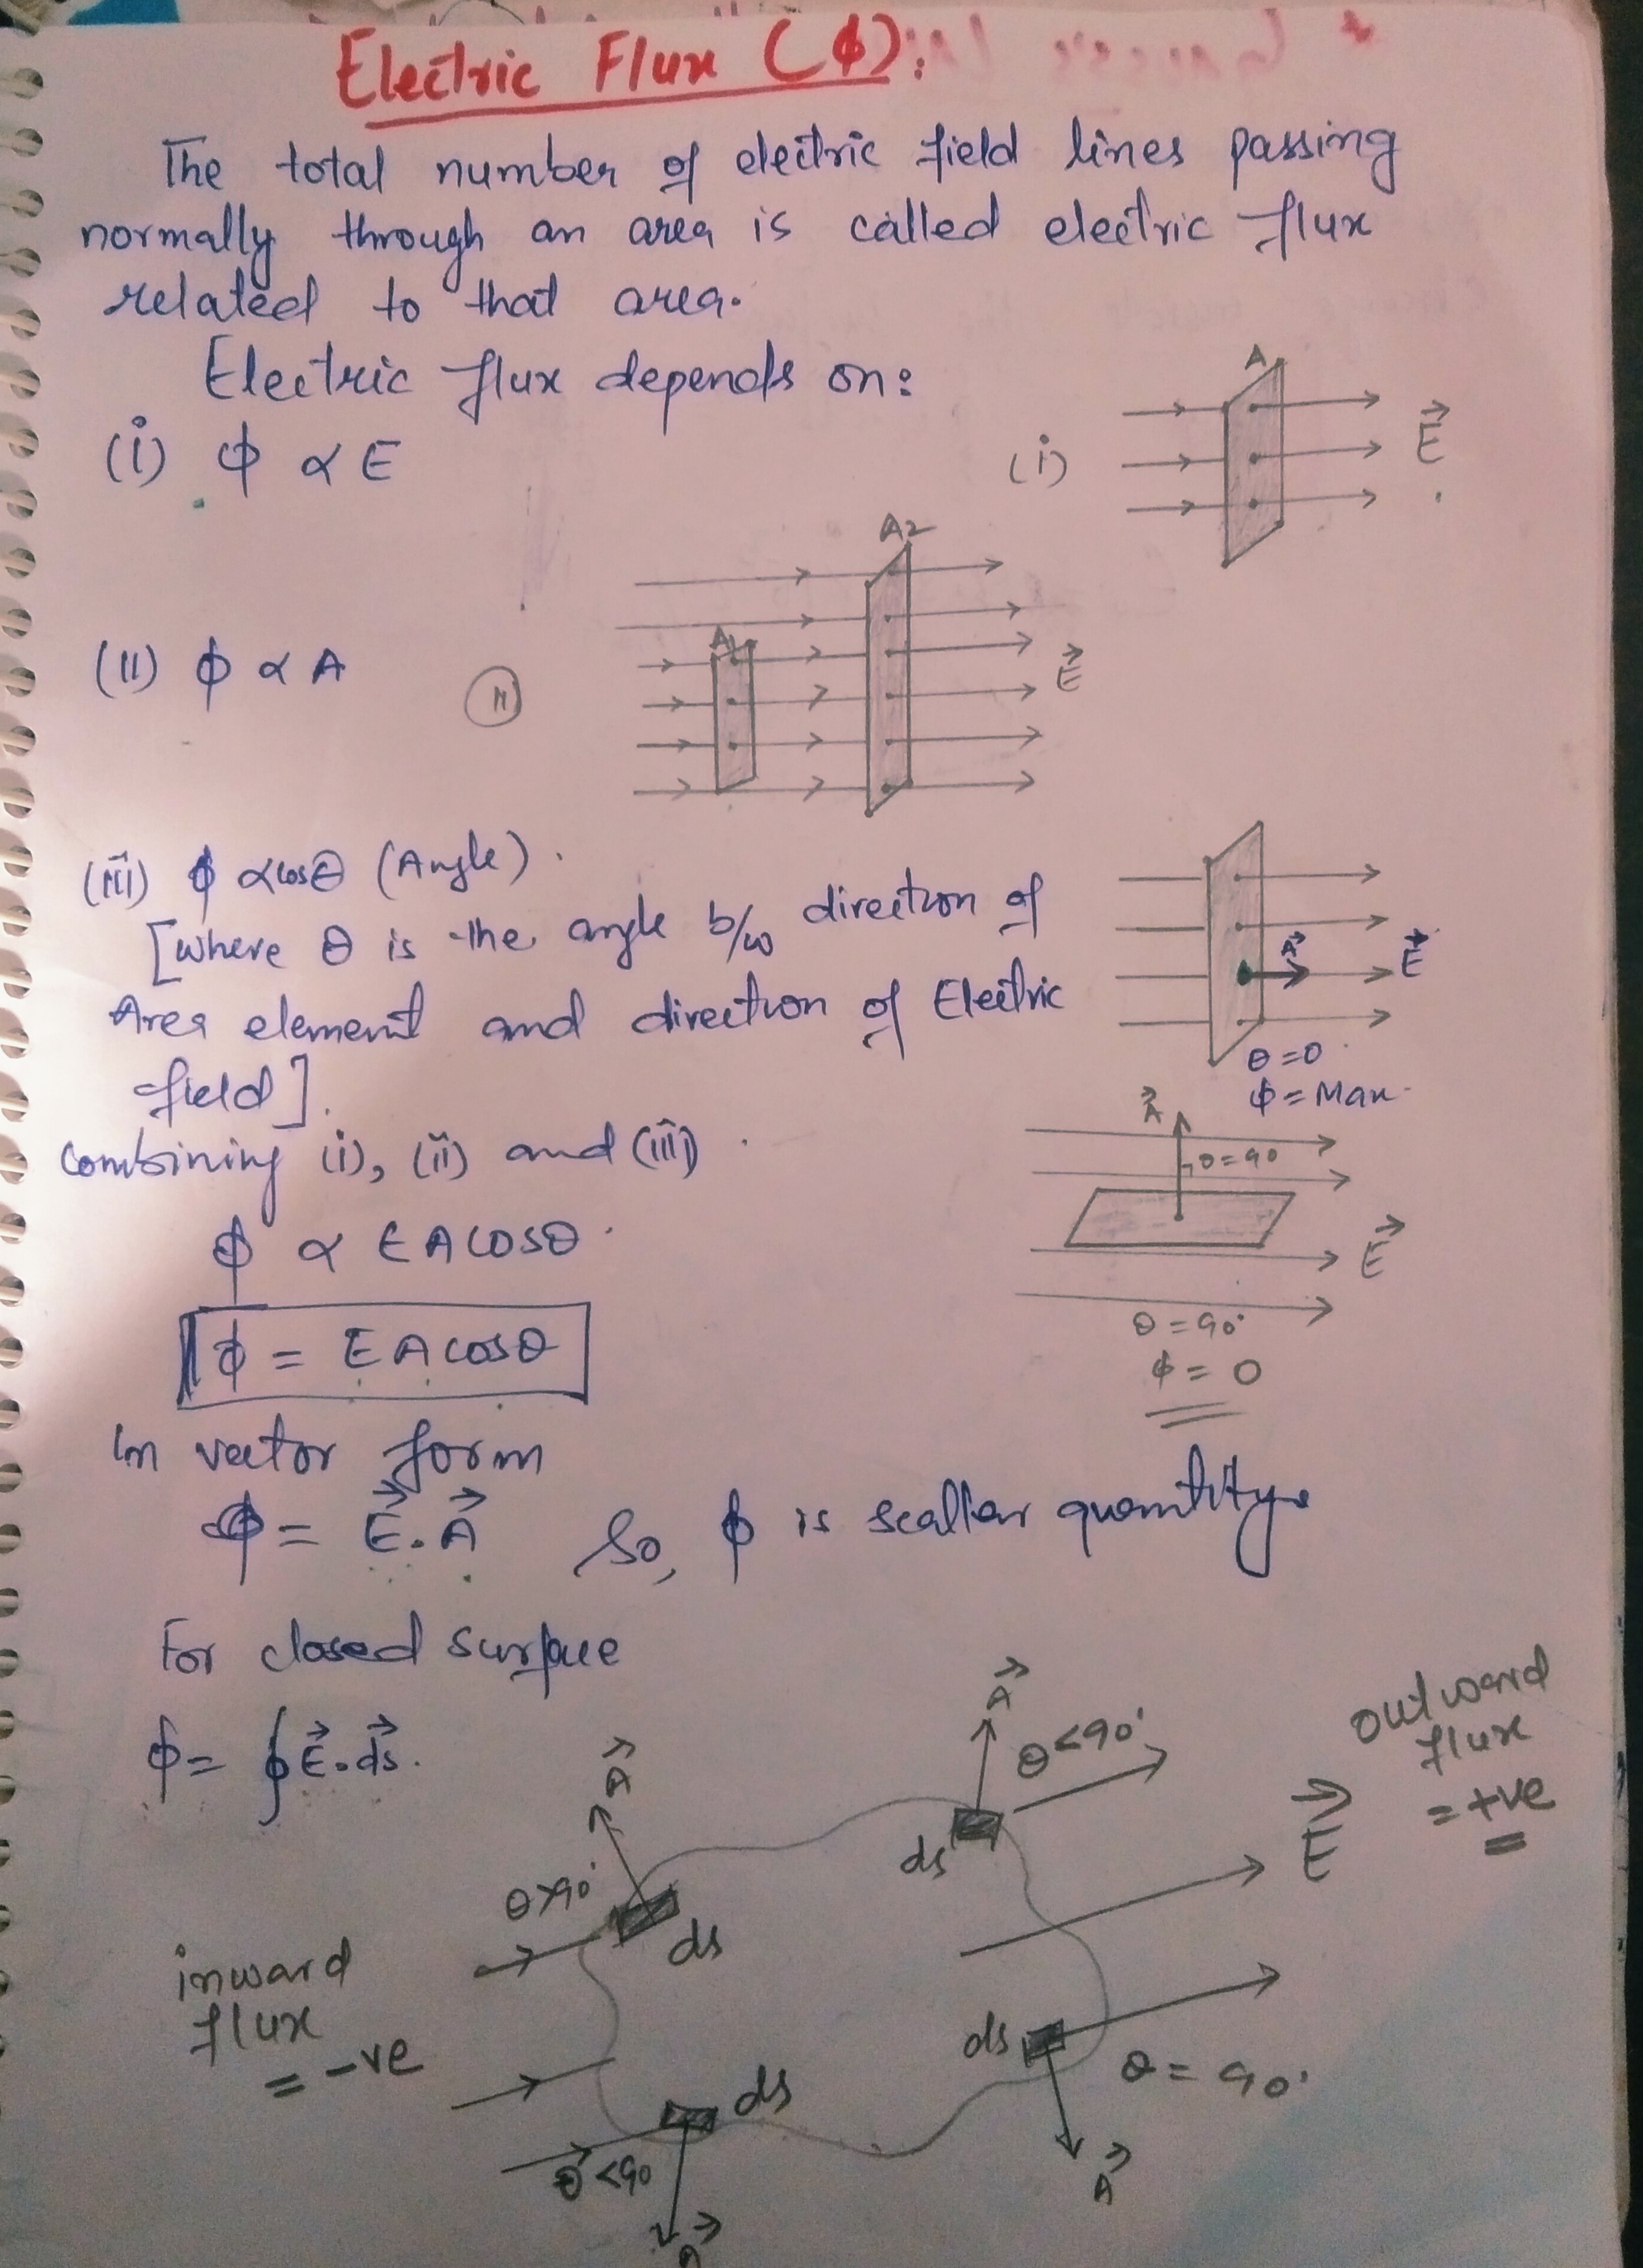 Electric Flux (ϕ):
The total number of electric field lines passing
normally through an area is called electric flux
related to that area.
Electric flux depends on:
(i) ϕ ∝ E
(i)
A
E⃗
(ii) ϕ ∝ A
(ii)
A1
A2
E⃗
(iii) ϕ ∝ cosθ (Angle).
[where θ is the angle b/w direction of
Area element and direction of Electric
field].
A⃗
E⃗
θ=0
ϕ = Max.
combining (i), (ii) and (iii)
ϕ ∝ EACOSθ
ϕ = EAcosθ
A⃗
θ=90
E⃗
θ = 90°
ϕ = 0
In vector form
ϕ = E⃗.A⃗ So, ϕ is scallar quantity.
For closed surface
ϕ = ∮E⃗.ds⃗.
A⃗
θ>90°
ds
A⃗
θ<90°
ds
outward
flux
= +ve
E⃗
inward
flux
= -ve
ds
θ<90
A⃗
ds
θ = 90°
A⃗